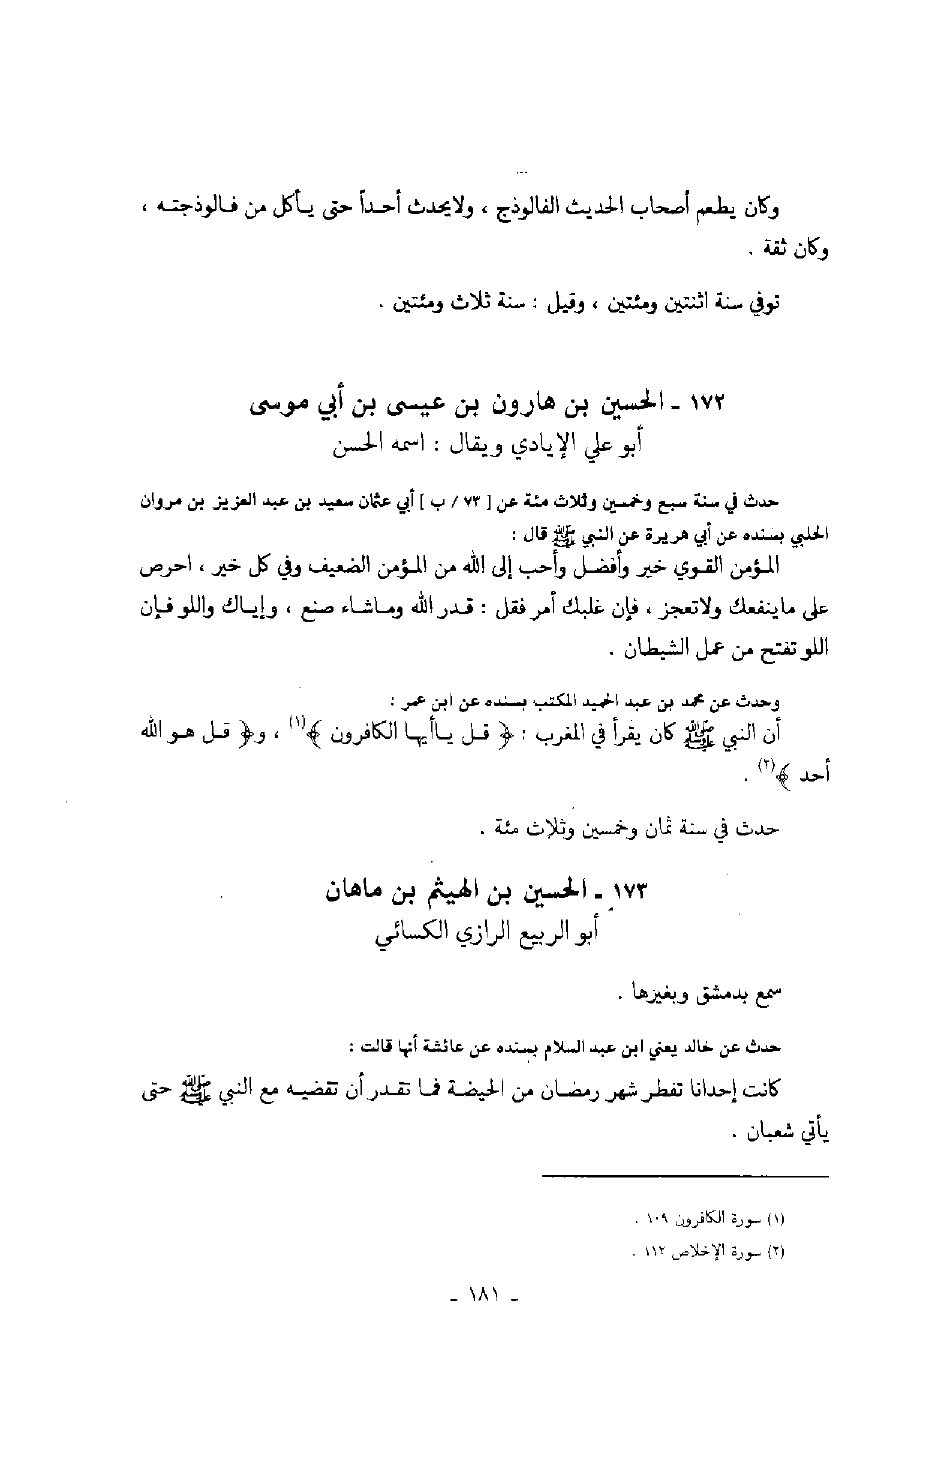 وكان يطعم أصحاب الحديث الفالوذج ، ولايحدث أحداً حتى يأكل من فالوذجته ،
وكان ثقة .
توفي سنة اثنتين ومئتين ، وقيل : سنة ثلاث ومئتين .
١٧٢ ـ الحسين بن هارون بن عيسى بن أبي موسى
أبو علي الإيادي ويقال : اسمه الحسن
حدث في سنة سبع وخمسين وثلاث مئة عن [ ٧٣ / ب ] أبي عثمان سعيد بن عبد العزيز بن مروان
الحلبي بسنده عن أبي هريرة عن النبي ﷺ قال :
المؤمن القوي خير وأفضل وأحب إلى الله من المؤمن الضعيف وفي كل خير ، احرص
على ماينفعك ولاتعجز ، فإن غلبك أمر فقل : قدر الله وماشاء صنع ، وإياك واللو فإن
اللو تفتح من عمل الشيطان .
وحدث عن محمد بن عبد الحميد المكتب بسنده عن ابن عمر :
أن النبي ﷺ كان يقرأ في المغرب : ﴿ قل ياأيها الكافرون ﴾(١) ، و﴿ قل هو الله
أحد ﴾(٢) .
حدث في سنة ثمان وخمسين وثلاث مئة .
١٧٣ ـ الحسين بن الهيثم بن ماهان
أبو الربيع الرازي الكسائي
سمع بدمشق وبغيرها .
حدث عن خالد يعني ابن عبد السلام بسنده عن عائشة أنها قالت :
كانت إحدانا تفطر شهر رمضان من الحيضة فما تقدر أن تقضيه مع النبي ﷺ حتى
يأتي شعبان .
(١) سورة الكافرون ١٠٩ .
(٢) سورة الإخلاص ١١٢ .
ـ ١٨١ ـ